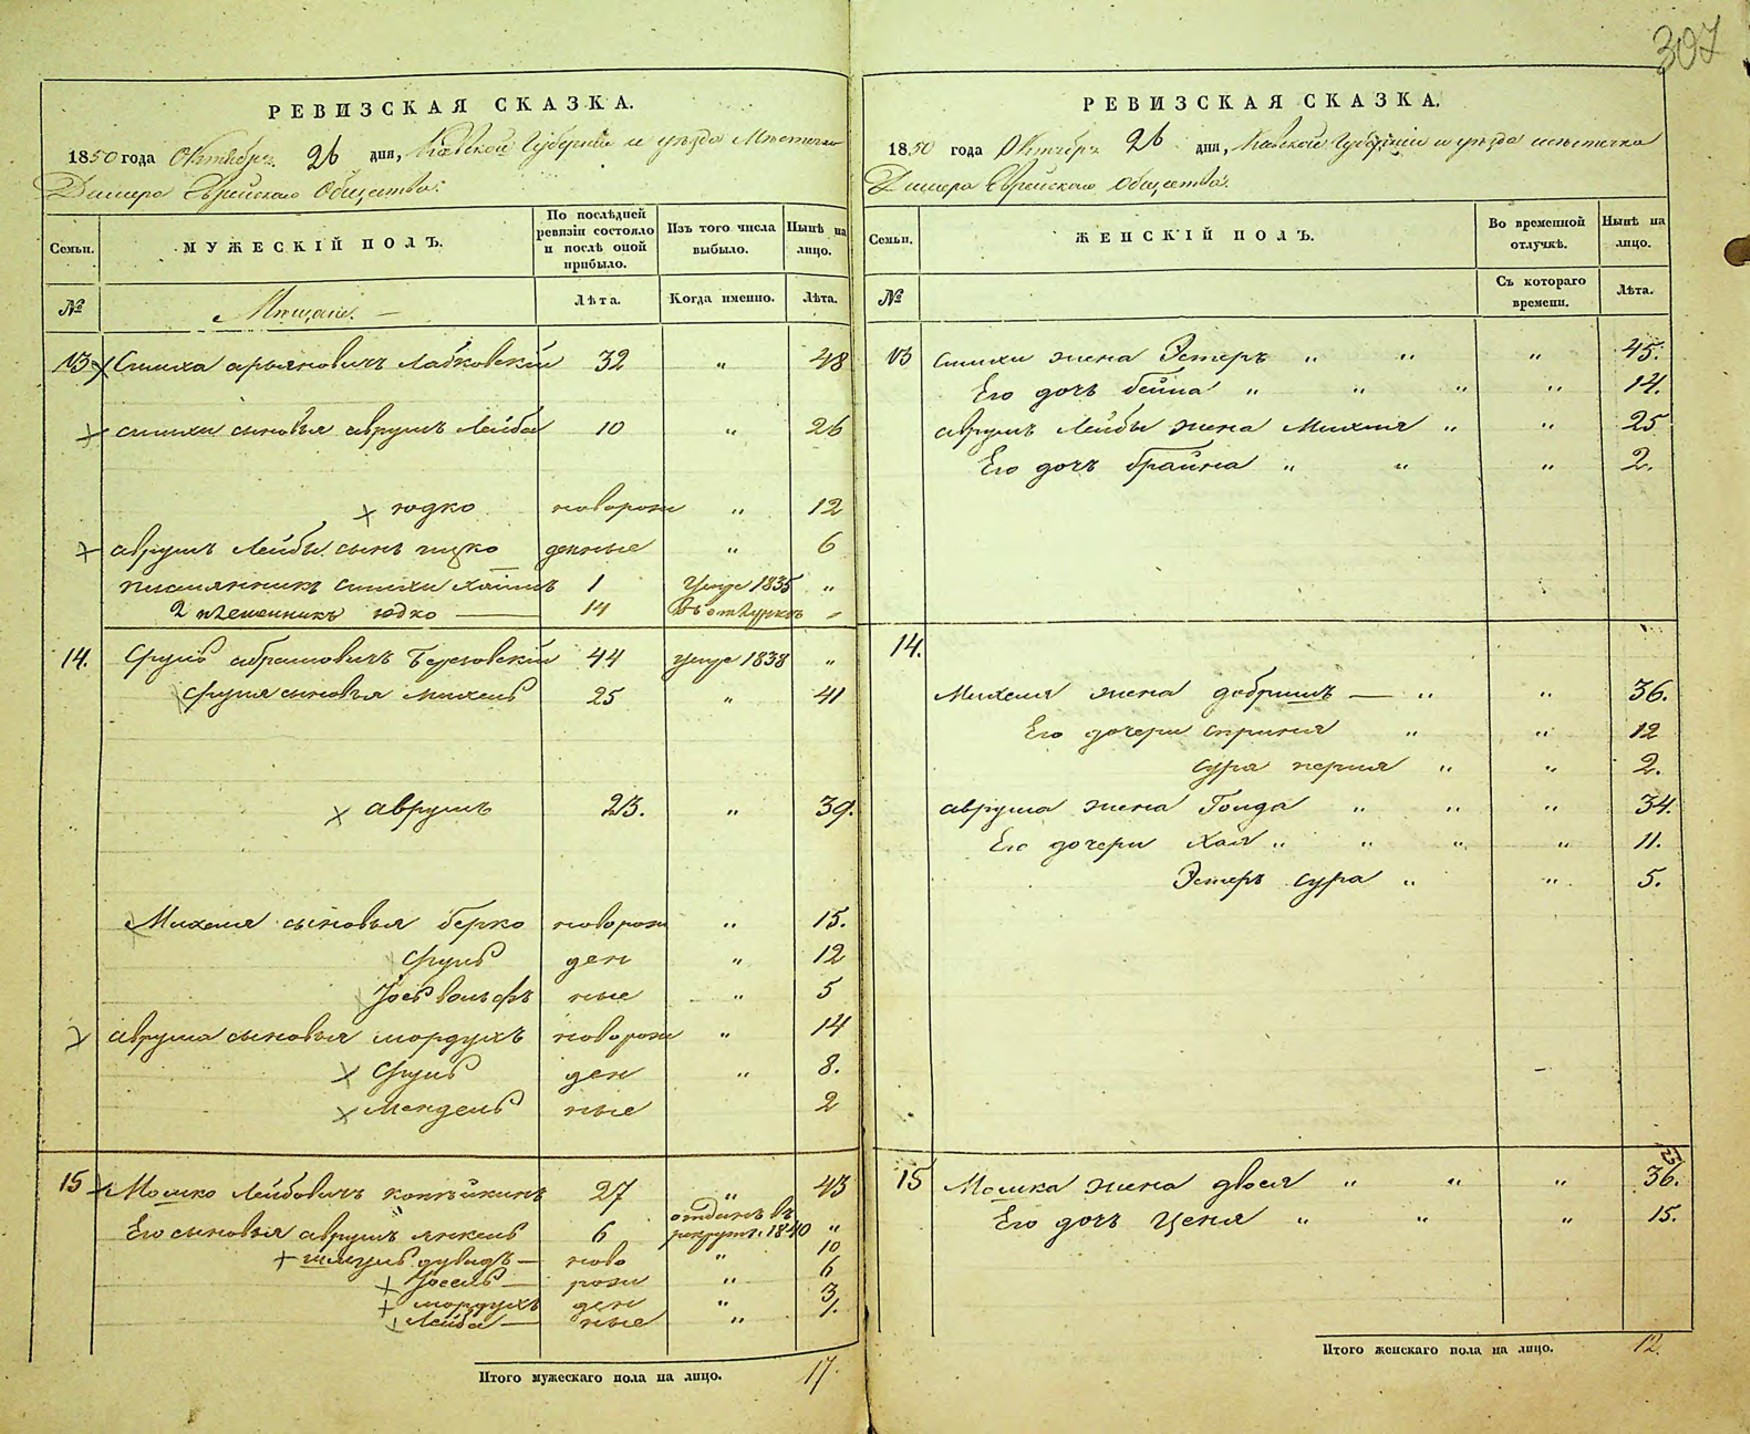 307
РЕВИЗСКАЯ СКАЗКА.
1850 года Октября 26 дня, Киевской Губернии и уезда Местечка
Дымера Еврейскаго Общества:
Семьи. МУЖЕСКІЙ ПОЛЪ. По послѣдней ревизіи состояло и послѣ оной прибыло. Изъ того числа выбыло. Нынѣ на лицо.
№ Мещане. Лѣта. Когда именно. Лѣта.
13 Симха Лабковскій 32 " 48
Симхи сыновья аврумъ Лейба 10 " 26
юдко новорож " 12
аврумъ Лейбы сынъ ицко денные " 6
племянникъ Симхи Хаимъ 1 умре 1835 "
2 племенникъ юдко 14
14. Сруль абрамовичъ Березовскій 44 умре 1838 "
Сруля сыновья михель 25 " 41
аврумъ 23. " 39.
Михеля сыновья берко новорож " 15.
Сруль ден " 12
Иось вольфъ ные " 5
аврума сыновья мордухъ новорож " 14
Сруль ден " 8.
Мендель ные 2
15 Мошко Лейбовичъ 27 " 43
Его сыновья аврумъ янкель 6 отданъ въ рекруты 1840 "
шмуль дувидъ ново " 10
Иосель рож " 6
мордухъ ден " 3
Лейба ные " 1.
Итого мужескаго пола на лицо. 17.
РЕВИЗСКАЯ СКАЗКА.
1850 года Октября 26 дня, Киевской Губерніи и уезда местечка
Дымера Еврейскаго Общества.
Семьи. ЖЕНСКІЙ ПОЛЪ. Во временной отлучкѣ. Нынѣ на лицо.
№ Съ котораго времени. Лѣта.
13 Симхи жена Эстеръ " " " 45.
Его дочь бейла " " " " 14.
аврумъ Лейбы жена Михля " " 25
Его дочь брайна " " " 2.
14.
Михеля жена добришъ " " 36.
Его дочери спринца " " 12
сура перля " " 2.
аврума жена Голда " " " 34.
Его дочери Хая " " " " 11.
Эстеръ сура " " 5.
15 Мошка жена двося " " " 36.
Его дочь Ценя " " " 15.
Итого женскаго пола на лицо. 12.